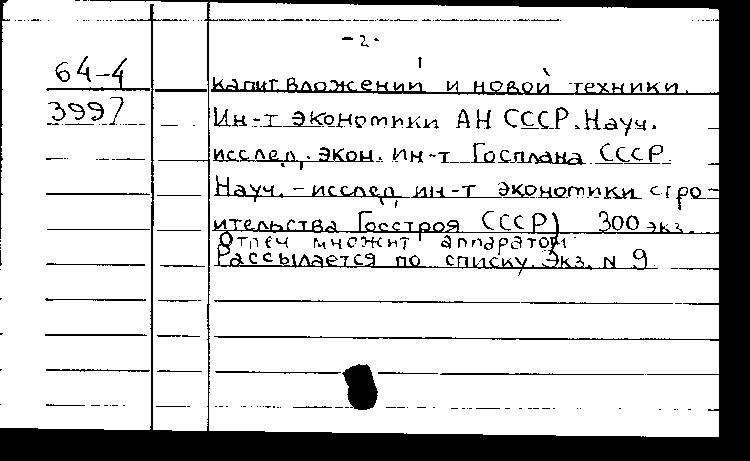 - 2 -
64-4
3997
капит. вложений и новой техники.
Ин-т экономики АН СССР. Науч.
исслед. экон. ин-т Госплана СССР
Науч. - исслед. ин-т экономики стро-
ительства Госстроя СССР) 300 экз.
Отпеч множит аппаратом
Рассылается по списку. Экз. N 9